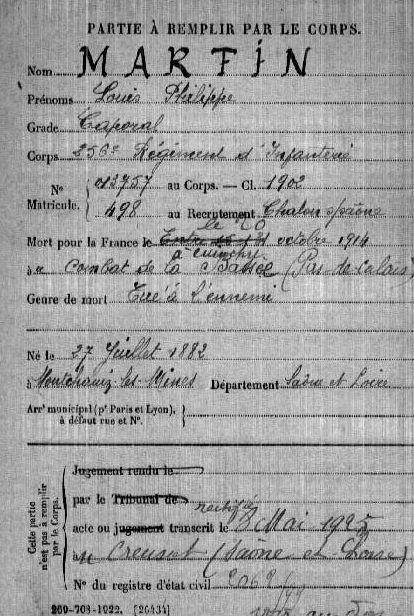 PARTIE À REMPLIR PAR LE CORPS.
Nom MARTIN
Prénoms Louis Philippe
Grade Caporal
Corps 256e Régiment d'Infanterie
N° 013757 au Corps. — Cl. 1902
Matricule. 498 au Recrutement Chalon s/Saône
le 20
Mort pour la France le octobre 1914
à Cuinchy
à " Combat de la Bassée (Pas-de-Calais)
Genre de mort Tué à l'ennemi
Né le 27 Juillet 1882
à Montchanin-les-Mines Département Saône et Loire
Arrt municipal (pr Paris et Lyon), à défaut rue et N°.
Cette partie n'est pas à remplir par le Corps.
Jugement rendu le
par le Tribunal de
rectifié
acte ou jugement transcrit le Mai 1925
au Creusot (Saône et Loire)
N° du registre d'état civil
269-708-1922. [26434]